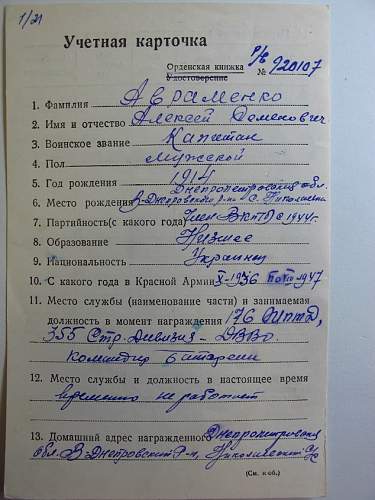 1/21
Учетная карточка
Р/б
Орденская книжка № 920107
Удостоверение
1. Фамилия Авраменко
2. Имя и отчество Алексей Доменович
3. Воинское звание Капитан
4. Пол мужской
5. Год рождения 1914
Днепропетровская обл.
6. Место рождения В-Днепровского р-на с. Николаевка
7. Партийность (с какого года) Член ВКП(б) с 1944 г.
8. Образование Низшее
9. Национальность Украинец
10. С какого года в Красной Армии X-1936 по 1947
11. Место службы (наименование части) и занимаемая
должность в момент награждения 176
355 Стр. Дивизия - ДВВО.
командир батареи
12. Место службы и должность в настоящее время
временно не работает
13. Домашний адрес награжденного Днепропетровская
обл. В-Днепровский р-н, Николаевский с/с
(См. н об.)